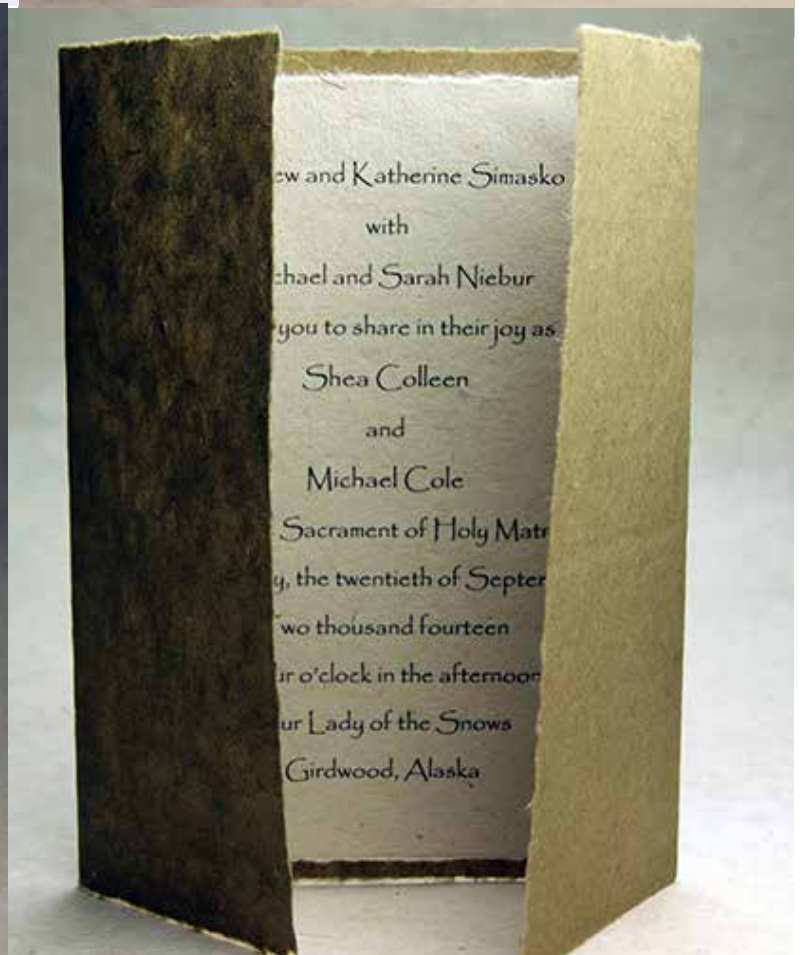 and Katherine Simasko
with
and Sarah Niebur
you to share in their joy as
Shea Colleen
and
Michael Cole
Sacrament of Holy
the twentieth of
thousand fourteen
o'clock in the afternoon
Lady of the Snows
Girdwood, Alaska